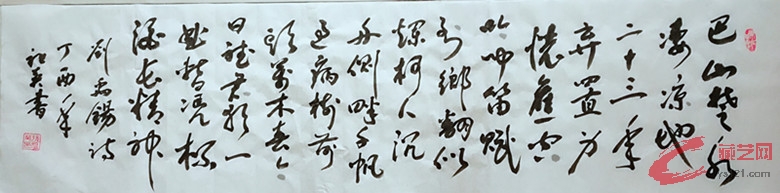 巴山楚水
凄凉地
二十三年
弃置身
怀旧空
吟闻笛赋
到乡翻似
烂柯人沉
舟侧畔千帆
过病树前
头万木春今
日听君歌一
曲暂凭杯
酒长精神
刘禹锡诗
丁酉年
书
藏艺网